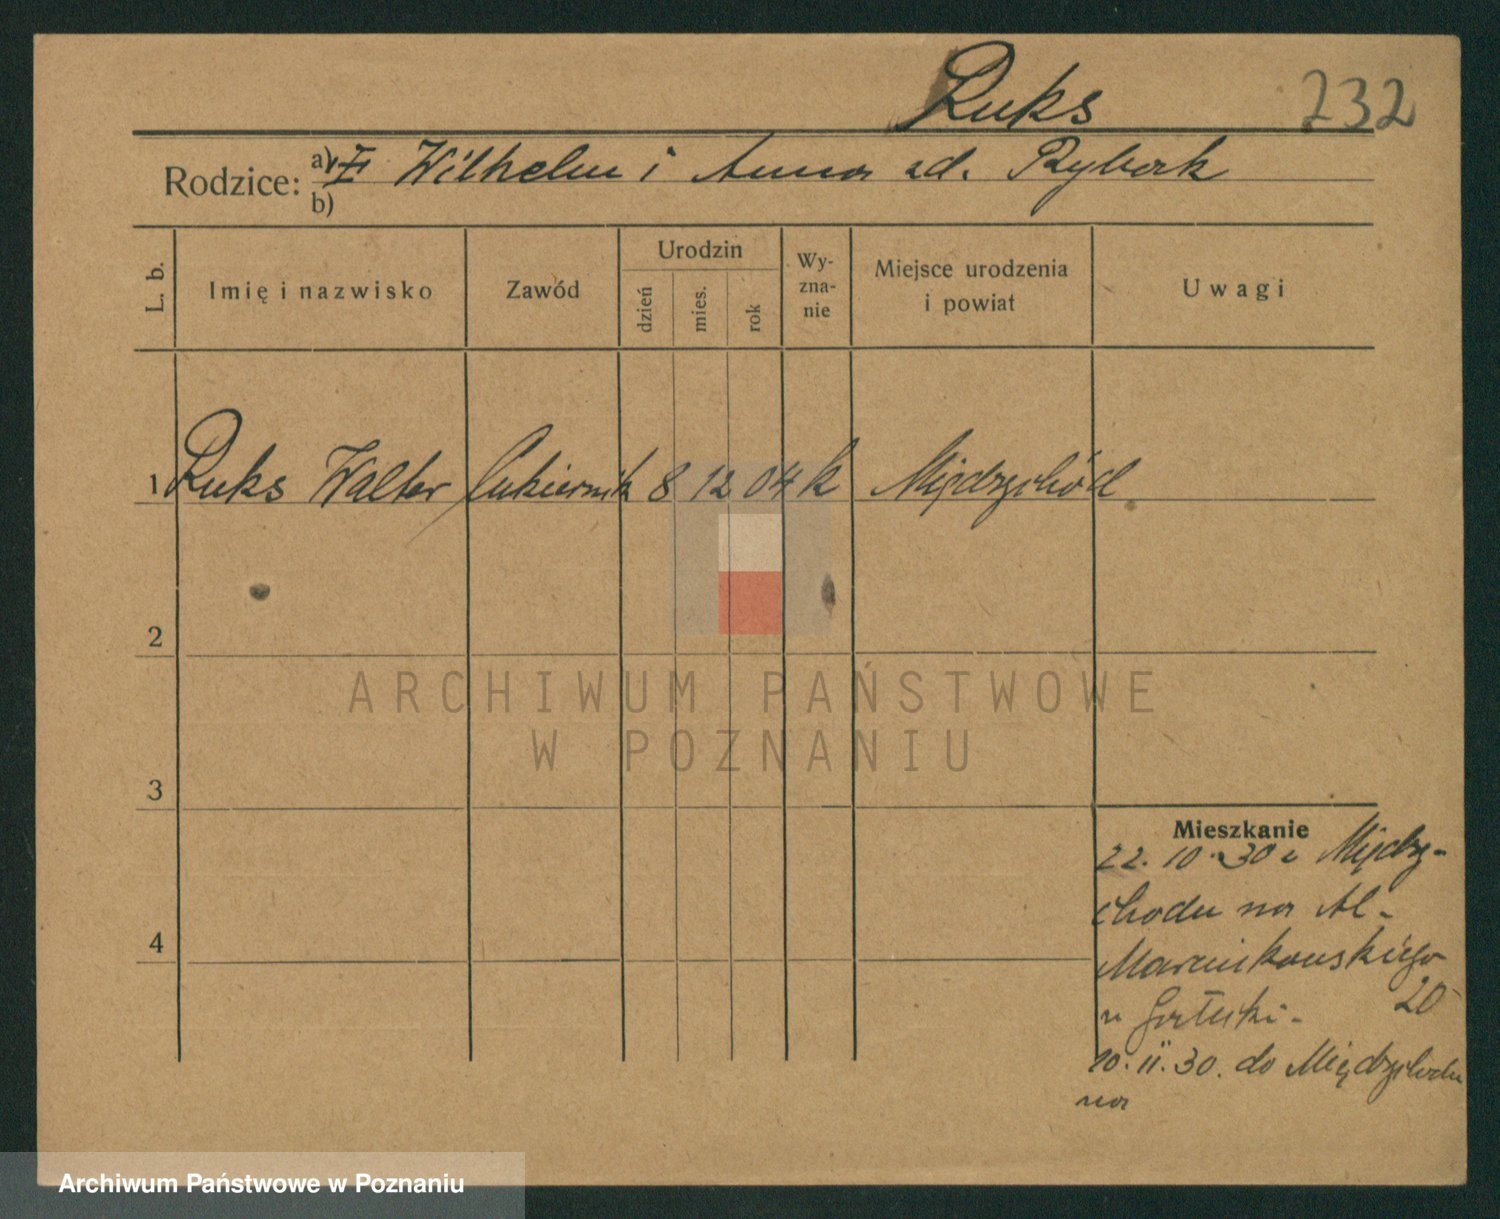 Ruks 232
Rodzice: a) Wilhelm i Anna zd. Rybak
b)
L. b. Imię i nazwisko Zawód Urodzin dzień mies. rok Wy-zna-nie Miejsce urodzenia i powiat Uwagi
1 Ruks Walter Cukiernik 8 12 04 k Międzychód
2
ARCHIWUM PAŃSTWOWE
W POZNANIU
3
Mieszkanie
22. 10. 30 z Między-
chodu na Al.
Marcinkowskiego
20
u
4
10. 11. 30. do Międzychodu
na
Archiwum Państwowe w Poznaniu